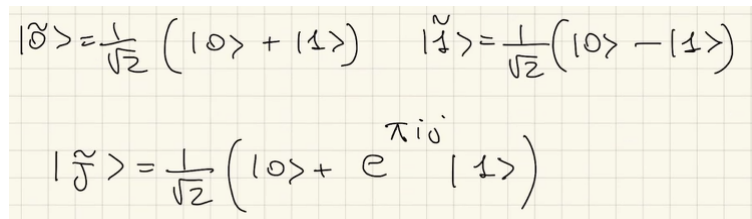 |0̃> = 1/√2 (|0> + |1>)  |1̃> = 1/√2 (|0> − |1>)
|j̃> = 1/√2 (|0> + e^{πij} |1>)